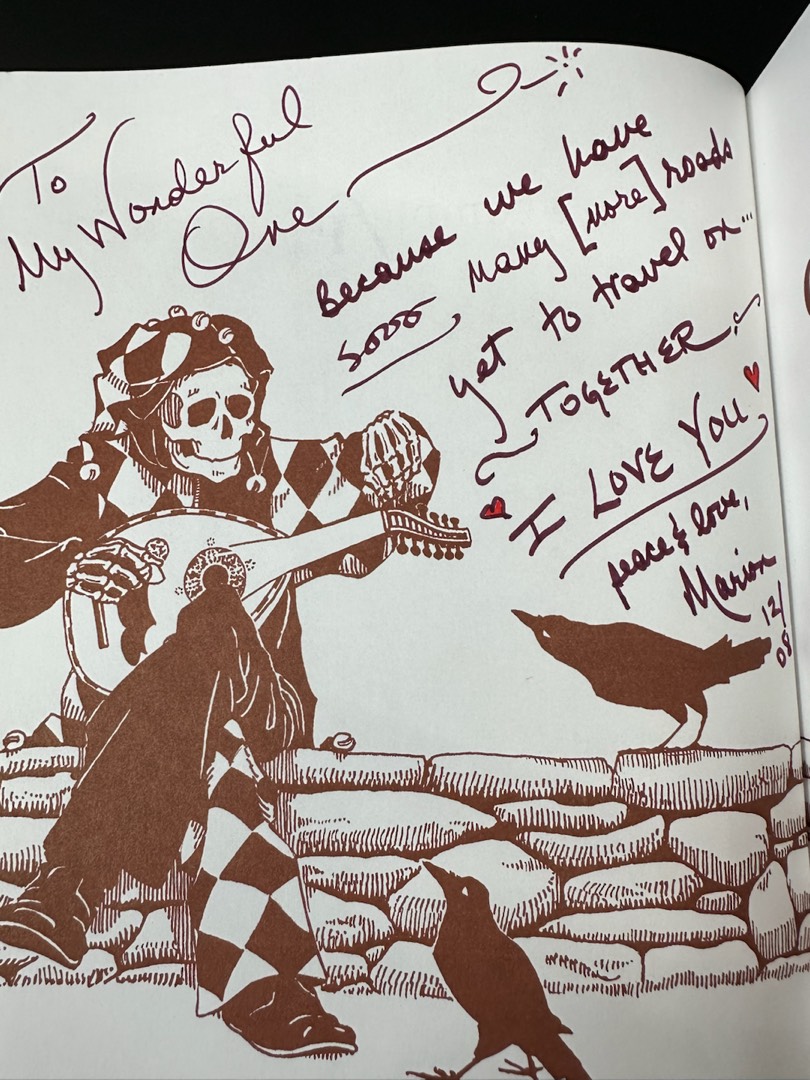 To
My Wonderful
One
Because we have
sooo many [more] roads
yet to travel on...
TOGETHER
I LOVE YOU
peace & love,
Marion
12/
08